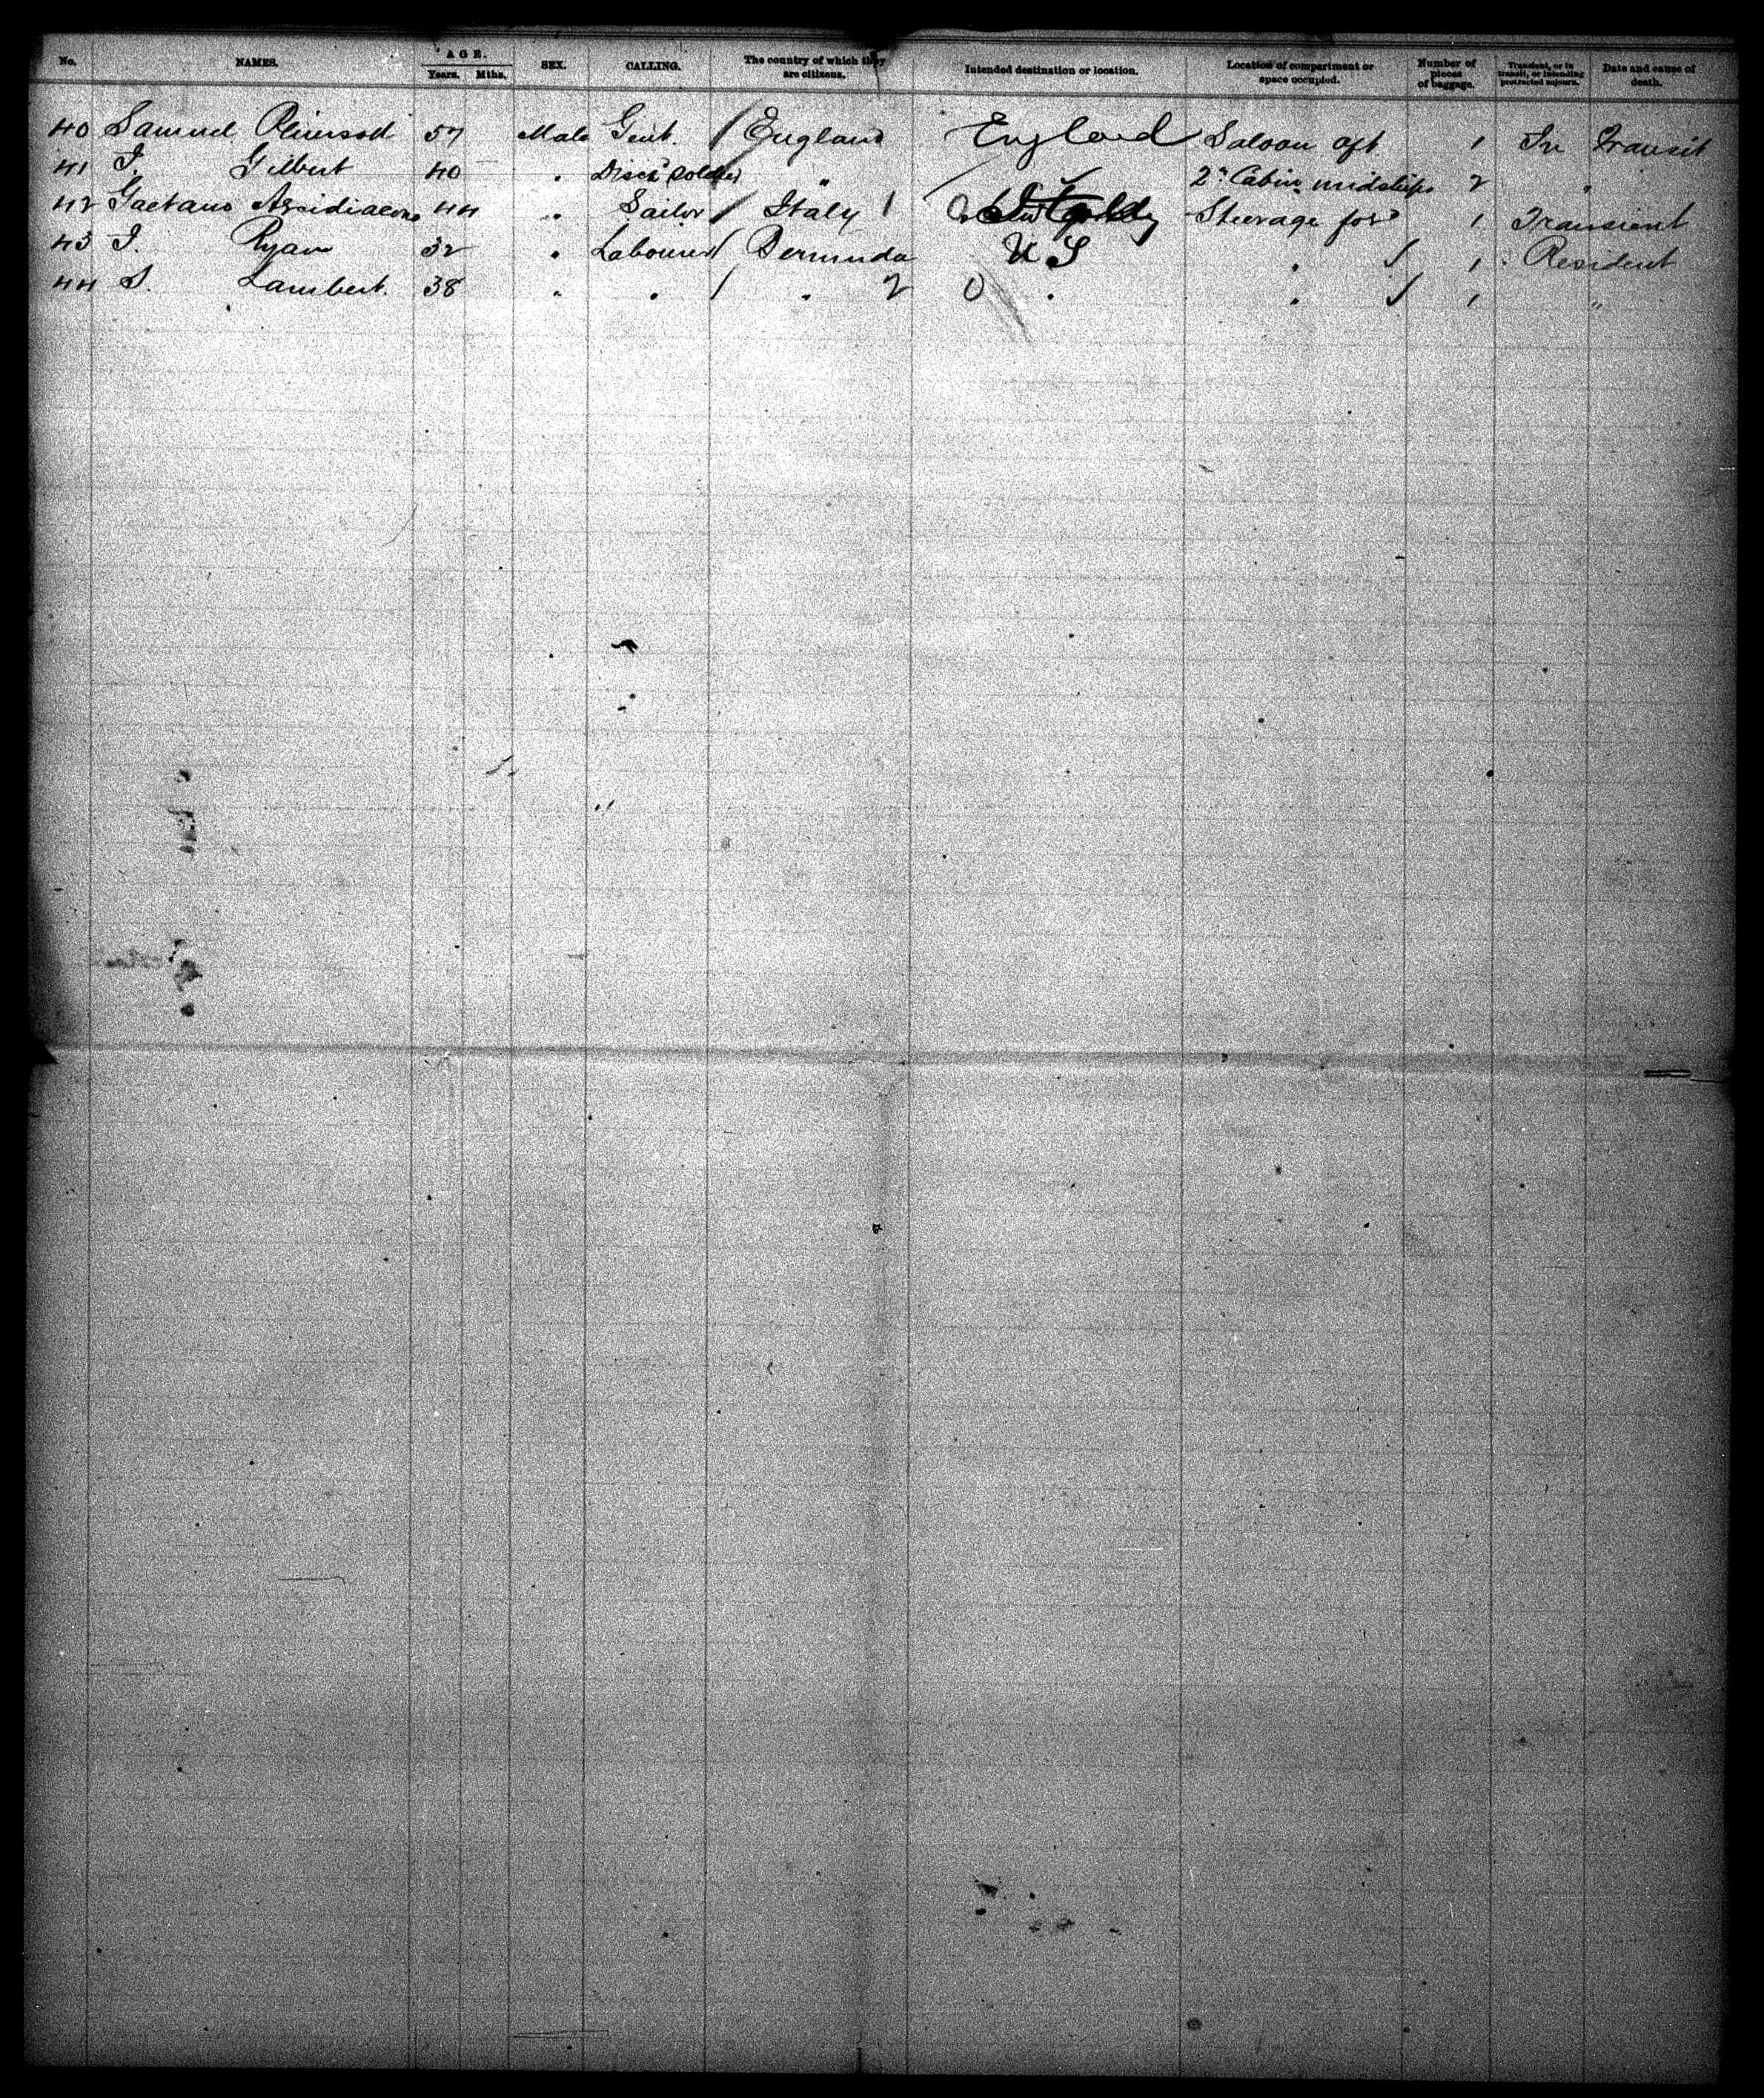 No. NAMES. AGE. Years. Mths. SEX. CALLING. The country of which they are citizens. Intended destination or location. Location of compartment or space occupied. Number of pieces of baggage. Transient, or in transit, or intending protracted sojourn. Date and cause of death.
40 Samuel 57 Male Gent. / England England Saloon aft 1 In Transit
41 T. Gilbert 40 — " Disch'd soldier " 2" Cabin midships 2 "
42 Gaetano 44 " Sailor / Italy 1 Steerage for'd 1 Transient
43 J. Ryan 32 " Labourer / Bermuda U S " / 1 Resident
44 S. Lambert. 38 " " / " 2 0 " " / 1 "